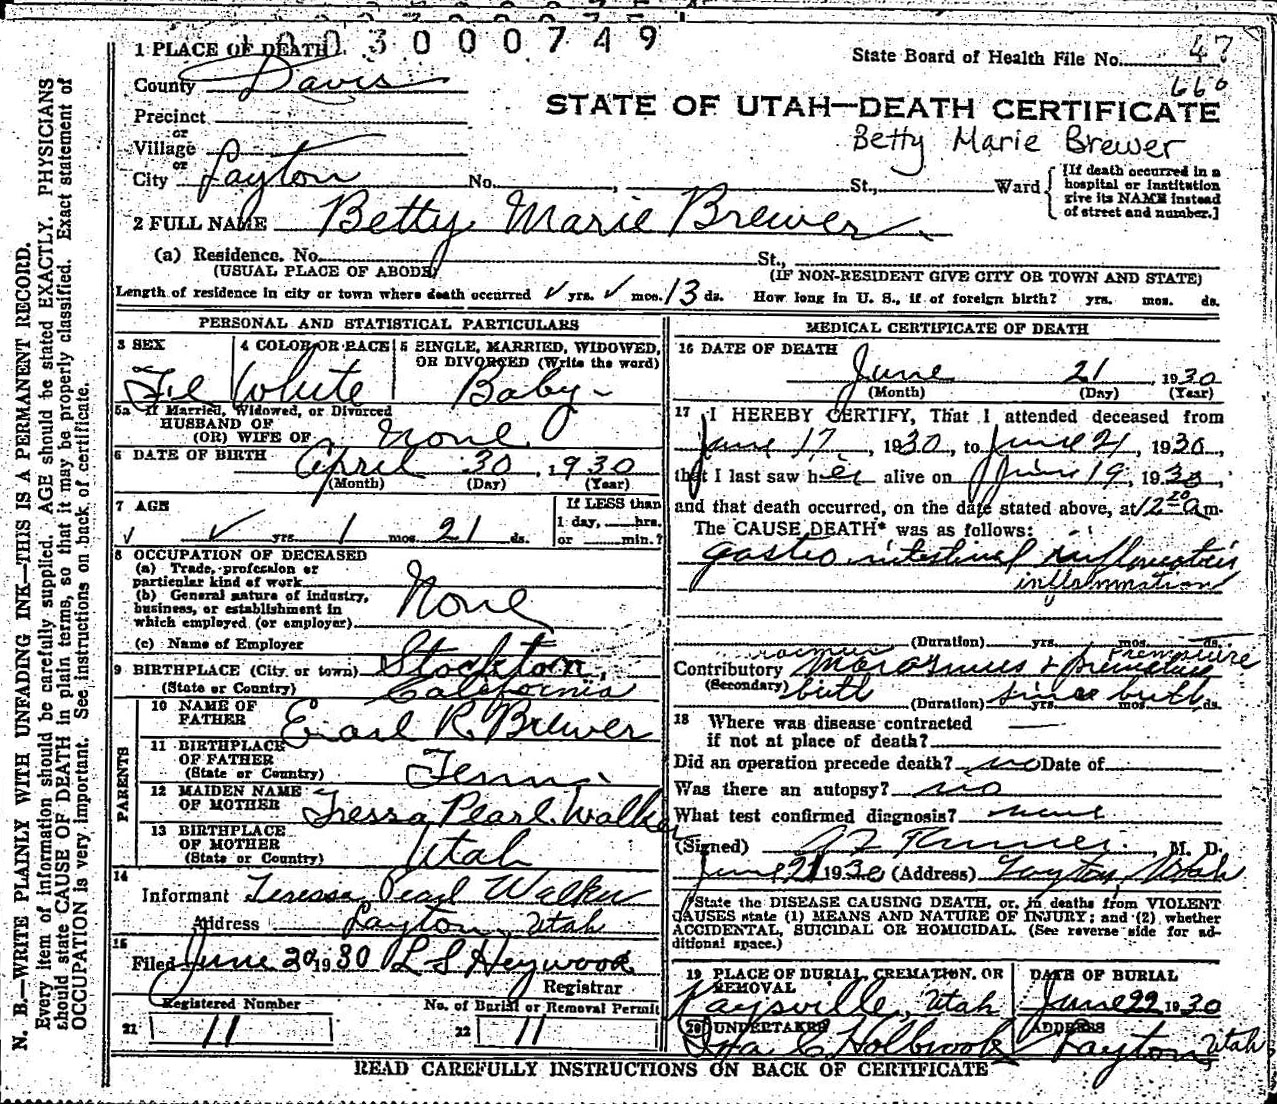 0 0 3 0 0 0 7 4 9
1 PLACE OF DEATH
State Board of Health File No. 47
660
County Davis
STATE OF UTAH—DEATH CERTIFICATE
Precinct
or
Village
Betty Marie Brewer
or
City Layton No. , St., Ward
[If death occurred in a hospital or institution give its NAME instead of street and number.]
2 FULL NAME Betty Marie Brewer
(a) Residence. No. St.,
(USUAL PLACE OF ABODE) (IF NON-RESIDENT GIVE CITY OR TOWN AND STATE)
Length of residence in city or town where death occurred ✓ yrs. ✓ mos. 13 ds. How long in U. S., if of foreign birth? yrs. mos. ds.
PERSONAL AND STATISTICAL PARTICULARS
3 SEX 4 COLOR OR RACE 5 SINGLE, MARRIED, WIDOWED,
OR DIVORCED (Write the word)
Fe White Baby
5a If Married, Widowed, or Divorced
HUSBAND OF
(OR) WIFE OF None
6 DATE OF BIRTH April 30, 1930
(Month) (Day) (Year)
7 AGE If LESS than
1 day, hrs.
✓ ✓ yrs. 1 mos. 21 ds. or min.?
8 OCCUPATION OF DECEASED
(a) Trade, profession or
particular kind of work
(b) General nature of industry,
business, or establishment in
which employed (or employer) None
(c) Name of Employer
9 BIRTHPLACE (City or town) Stockton,
(State or Country) California
PARENTS
10 NAME OF
FATHER Earl R. Brewer
11 BIRTHPLACE
OF FATHER
(State or Country) Tenn.
12 MAIDEN NAME
OF MOTHER Tressa Pearl Walker
13 BIRTHPLACE
OF MOTHER
(State or Country) Utah
14
Informant Teressa Pearl Walker
Address Layton, Utah
15
Filed June 20 1930 L S Heywood
Registrar
Registered Number No. of Burial or Removal Permit
21 11 22 11
MEDICAL CERTIFICATE OF DEATH
16 DATE OF DEATH
June 21, 1930
(Month) (Day) (Year)
17 I HEREBY CERTIFY, That I attended deceased from
June 17, 1930, to June 21, 1930,
that I last saw her alive on June 19, 1930,
and that death occurred, on the date stated above, at 12 20 a m.
The CAUSE DEATH* was as follows:
gastro intestinal inflamation
inflammation
(Duration) yrs. mos. ds.
Premature
Contributory Marasmus & premature
(Secondary) birth since birth
(Duration) yrs. mos. ds.
18 Where was disease contracted
if not at place of death? —
Did an operation precede death? no Date of
Was there an autopsy? no
What test confirmed diagnosis? none
(Signed) , M. D.
June 21 1930 (Address) Layton, Utah
*State the DISEASE CAUSING DEATH, or, in deaths from VIOLENT
CAUSES state (1) MEANS AND NATURE OF INJURY; and (2) whether
ACCIDENTAL, SUICIDAL OR HOMICIDAL. (See reverse side for ad-
ditional space.)
19 PLACE OF BURIAL, CREMATION, OR
REMOVAL
Kaysville, Utah
DATE OF BURIAL
June 22 1930
20 UNDERTAKER
Ira C Holbrook
ADDRESS
Layton, Utah
READ CAREFULLY INSTRUCTIONS ON BACK OF CERTIFICATE
N. B.—WRITE PLAINLY WITH UNFADING INK—THIS IS A PERMANENT RECORD.
Every item of information should be carefully supplied. AGE should be stated EXACTLY. PHYSICIANS
should state CAUSE OF DEATH in plain terms, so that it may be properly classified. Exact statement of
OCCUPATION is very important. See instructions on back of certificate.